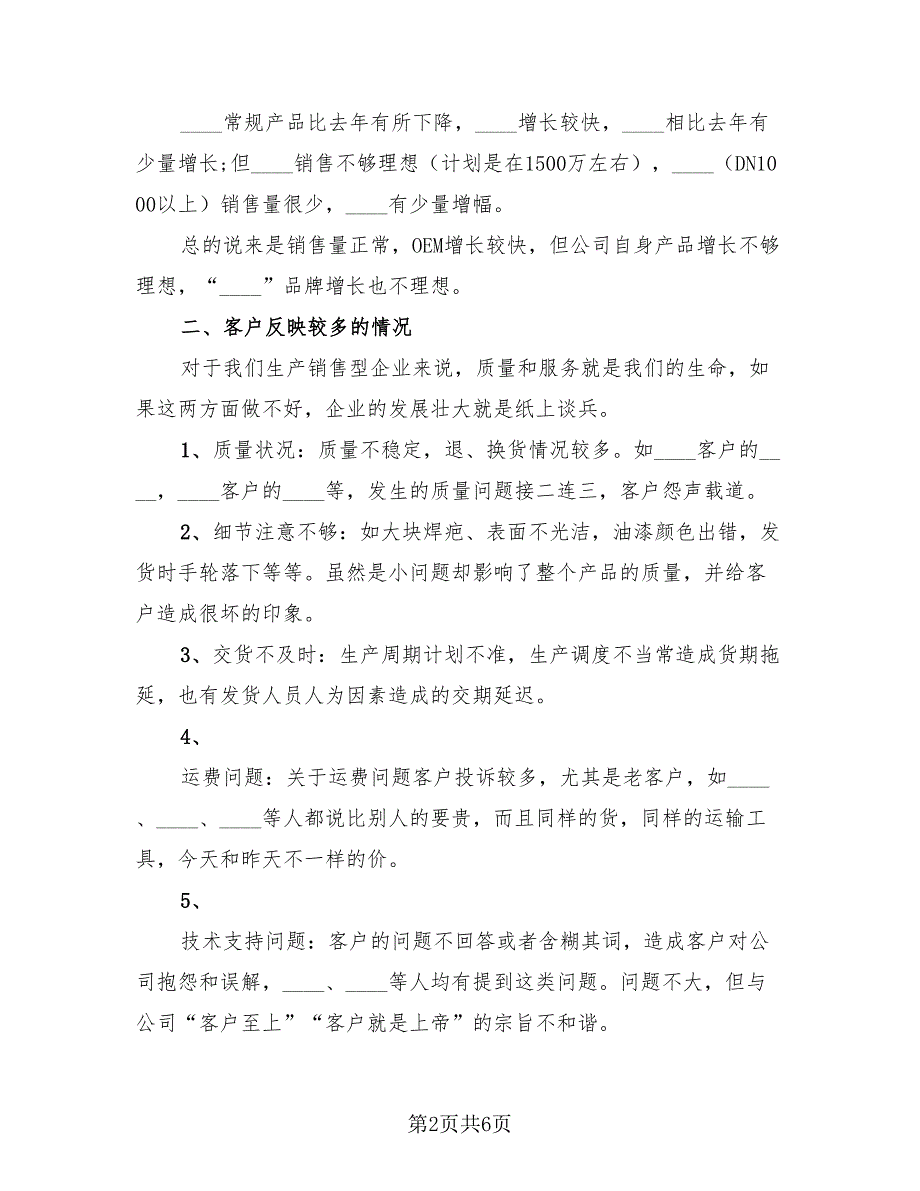 ____常规产品比去年有所下降，____增长较快，____相比去年有
少量增长;但____销售不够理想（计划是在1500万左右），____（DN10
00以上）销售量很少，____有少量增幅。
总的说来是销售量正常，OEM增长较快，但公司自身产品增长不够
理想，“____”品牌增长也不理想。
二、客户反映较多的情况
对于我们生产销售型企业来说，质量和服务就是我们的生命，如
果这两方面做不好，企业的发展壮大就是纸上谈兵。
1、质量状况：质量不稳定，退、换货情况较多。如____客户的__
__，____客户的____等，发生的质量问题接二连三，客户怨声载道。
2、细节注意不够：如大块焊疤、表面不光洁，油漆颜色出错，发
货时手轮落下等等。虽然是小问题却影响了整个产品的质量，并给客
户造成很坏的印象。
3、交货不及时：生产周期计划不准，生产调度不当常造成货期拖
延，也有发货人员人为因素造成的交期延迟。
4、
运费问题：关于运费问题客户投诉较多，尤其是老客户，如____
、____、____等人都说比别人的要贵，而且同样的货，同样的运输工
具，今天和昨天不一样的价。
5、
技术支持问题：客户的问题不回答或者含糊其词，造成客户对公
司抱怨和误解，____、____等人均有提到这类问题。问题不大，但与
公司“客户至上”“客户就是上帝”的宗旨不和谐。
第2页共6页